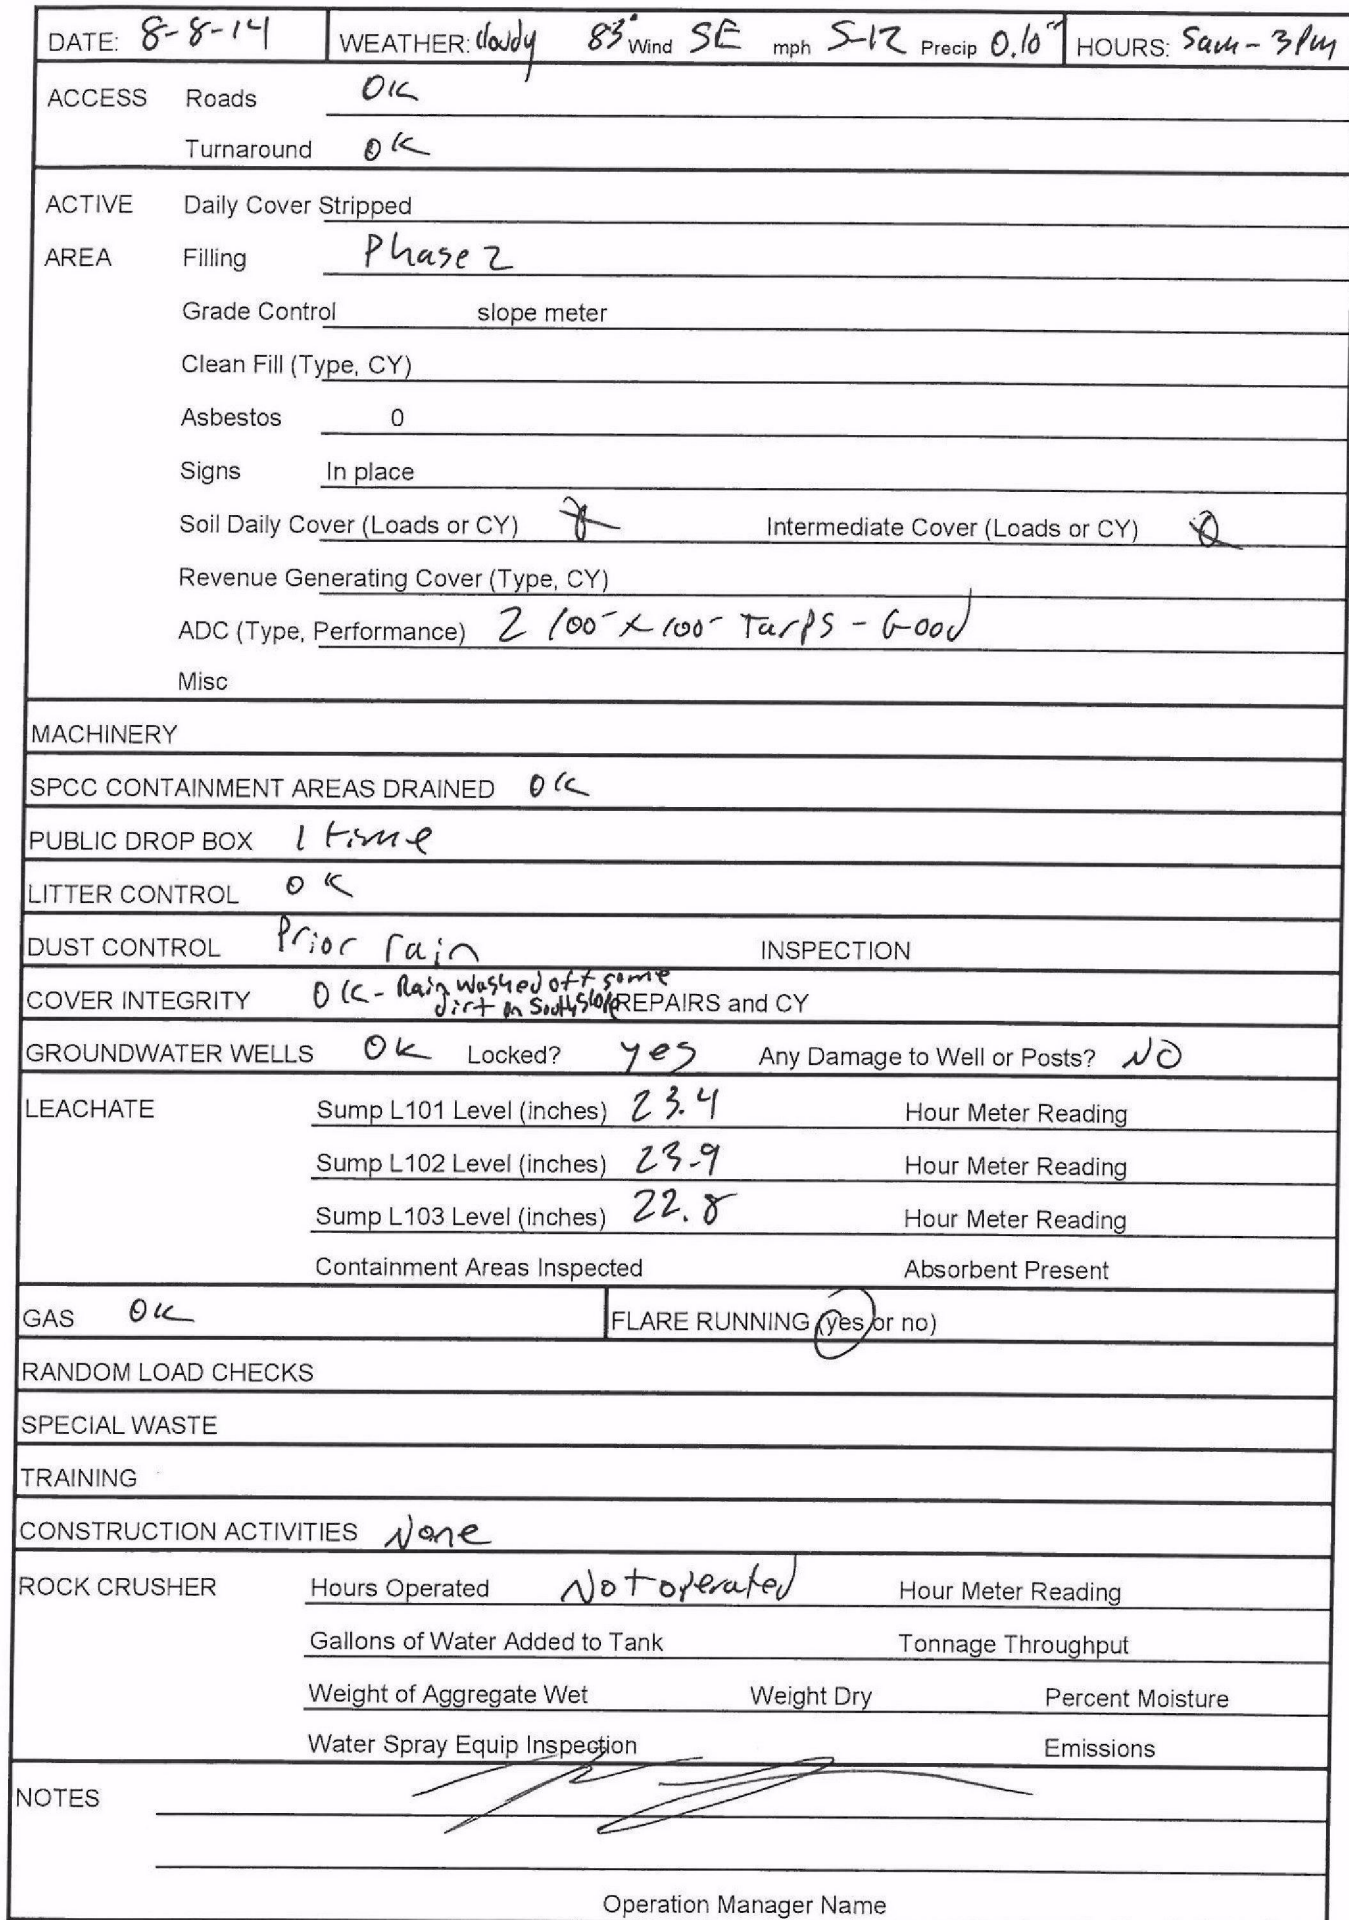 DATE: 8-8-14 WEATHER: cloudy 83° Wind SE mph 5-12 Precip 0.10" HOURS: 5am - 3pm
ACCESS Roads OK
Turnaround OK
ACTIVE Daily Cover Stripped
AREA Filling Phase 2
Grade Control slope meter
Clean Fill (Type, CY)
Asbestos 0
Signs In place
Soil Daily Cover (Loads or CY) Intermediate Cover (Loads or CY)
Revenue Generating Cover (Type, CY)
ADC (Type, Performance) 2 100' x 100' Tarps - Good
Misc
MACHINERY
SPCC CONTAINMENT AREAS DRAINED OK
PUBLIC DROP BOX 1 time
LITTER CONTROL OK
DUST CONTROL Prior rain INSPECTION
COVER INTEGRITY OK - Rain washed off some
dirt on South slope REPAIRS and CY
GROUNDWATER WELLS OK Locked? yes Any Damage to Well or Posts? NO
LEACHATE Sump L101 Level (inches) 23.4 Hour Meter Reading
Sump L102 Level (inches) 23.9 Hour Meter Reading
Sump L103 Level (inches) 22.8 Hour Meter Reading
Containment Areas Inspected Absorbent Present
GAS OK FLARE RUNNING (yes or no)
RANDOM LOAD CHECKS
SPECIAL WASTE
TRAINING
CONSTRUCTION ACTIVITIES None
ROCK CRUSHER Hours Operated Not operated Hour Meter Reading
Gallons of Water Added to Tank Tonnage Throughput
Weight of Aggregate Wet Weight Dry Percent Moisture
Water Spray Equip Inspection Emissions
NOTES
Operation Manager Name